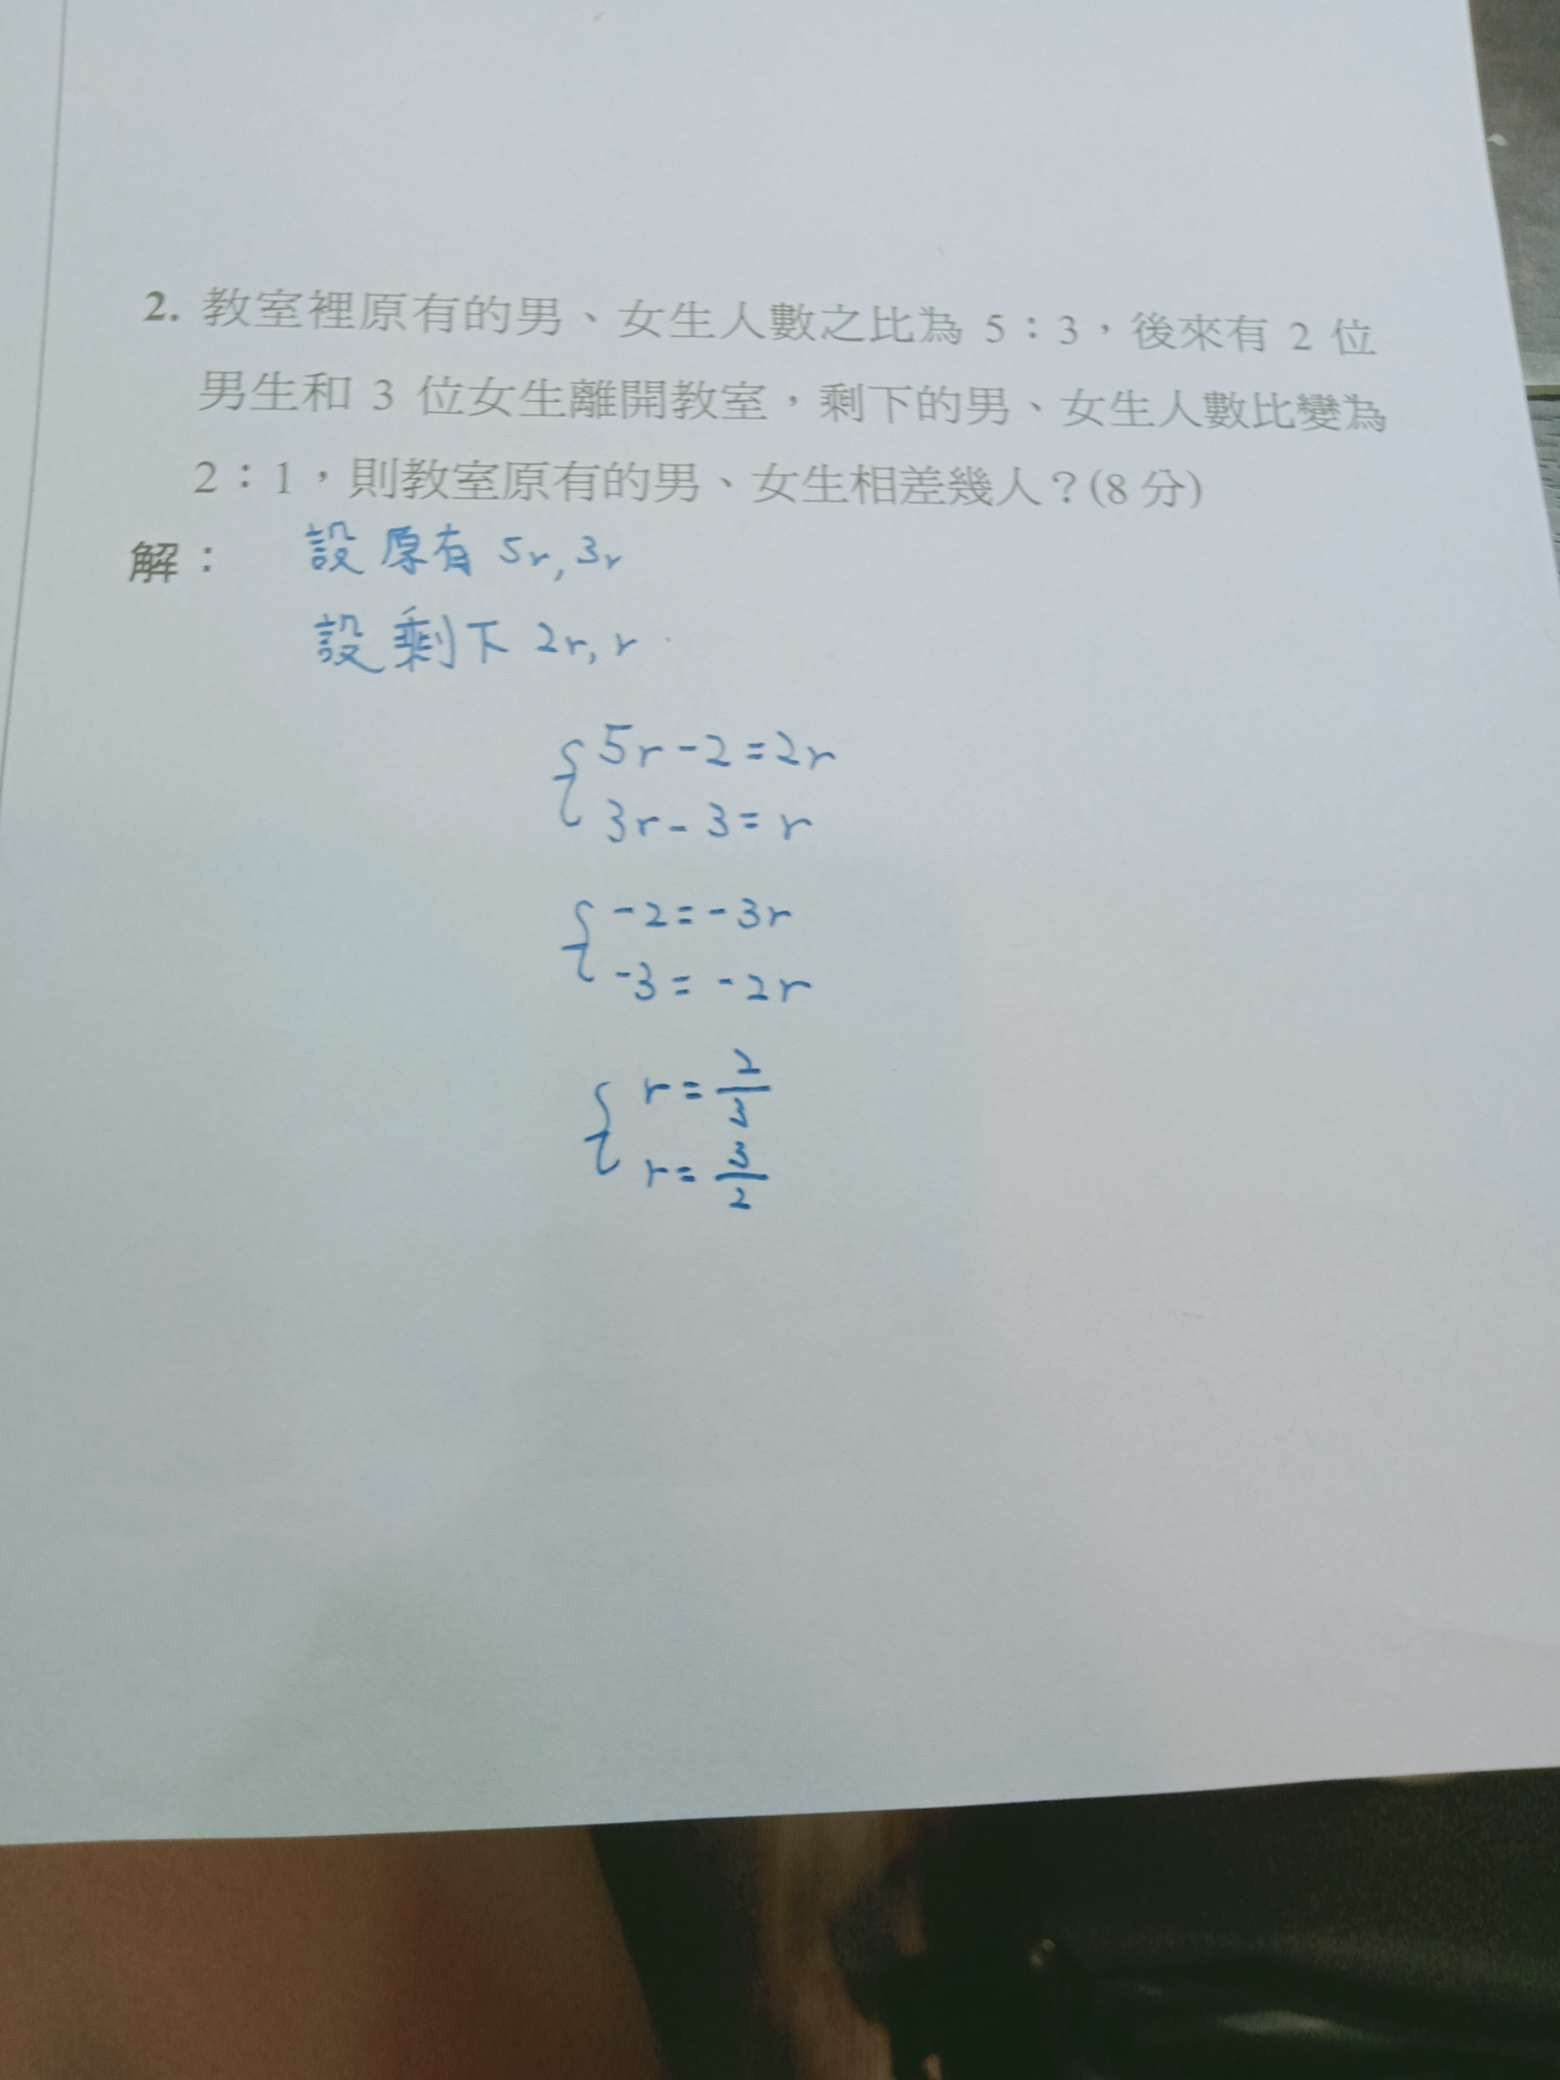 2. 教室裡原有的男、女生人數之比為 5:3,後來有 2 位
男生和 3 位女生離開教室,剩下的男、女生人數比變為
2:1,則教室原有的男、女生相差幾人?(8 分)
解: 設原有 5r, 3r
設剩下 2r, r
{ 5r - 2 = 2r
3r - 3 = r
{ -2 = -3r
-3 = -2r
{ r = 2/3
r = 3/2